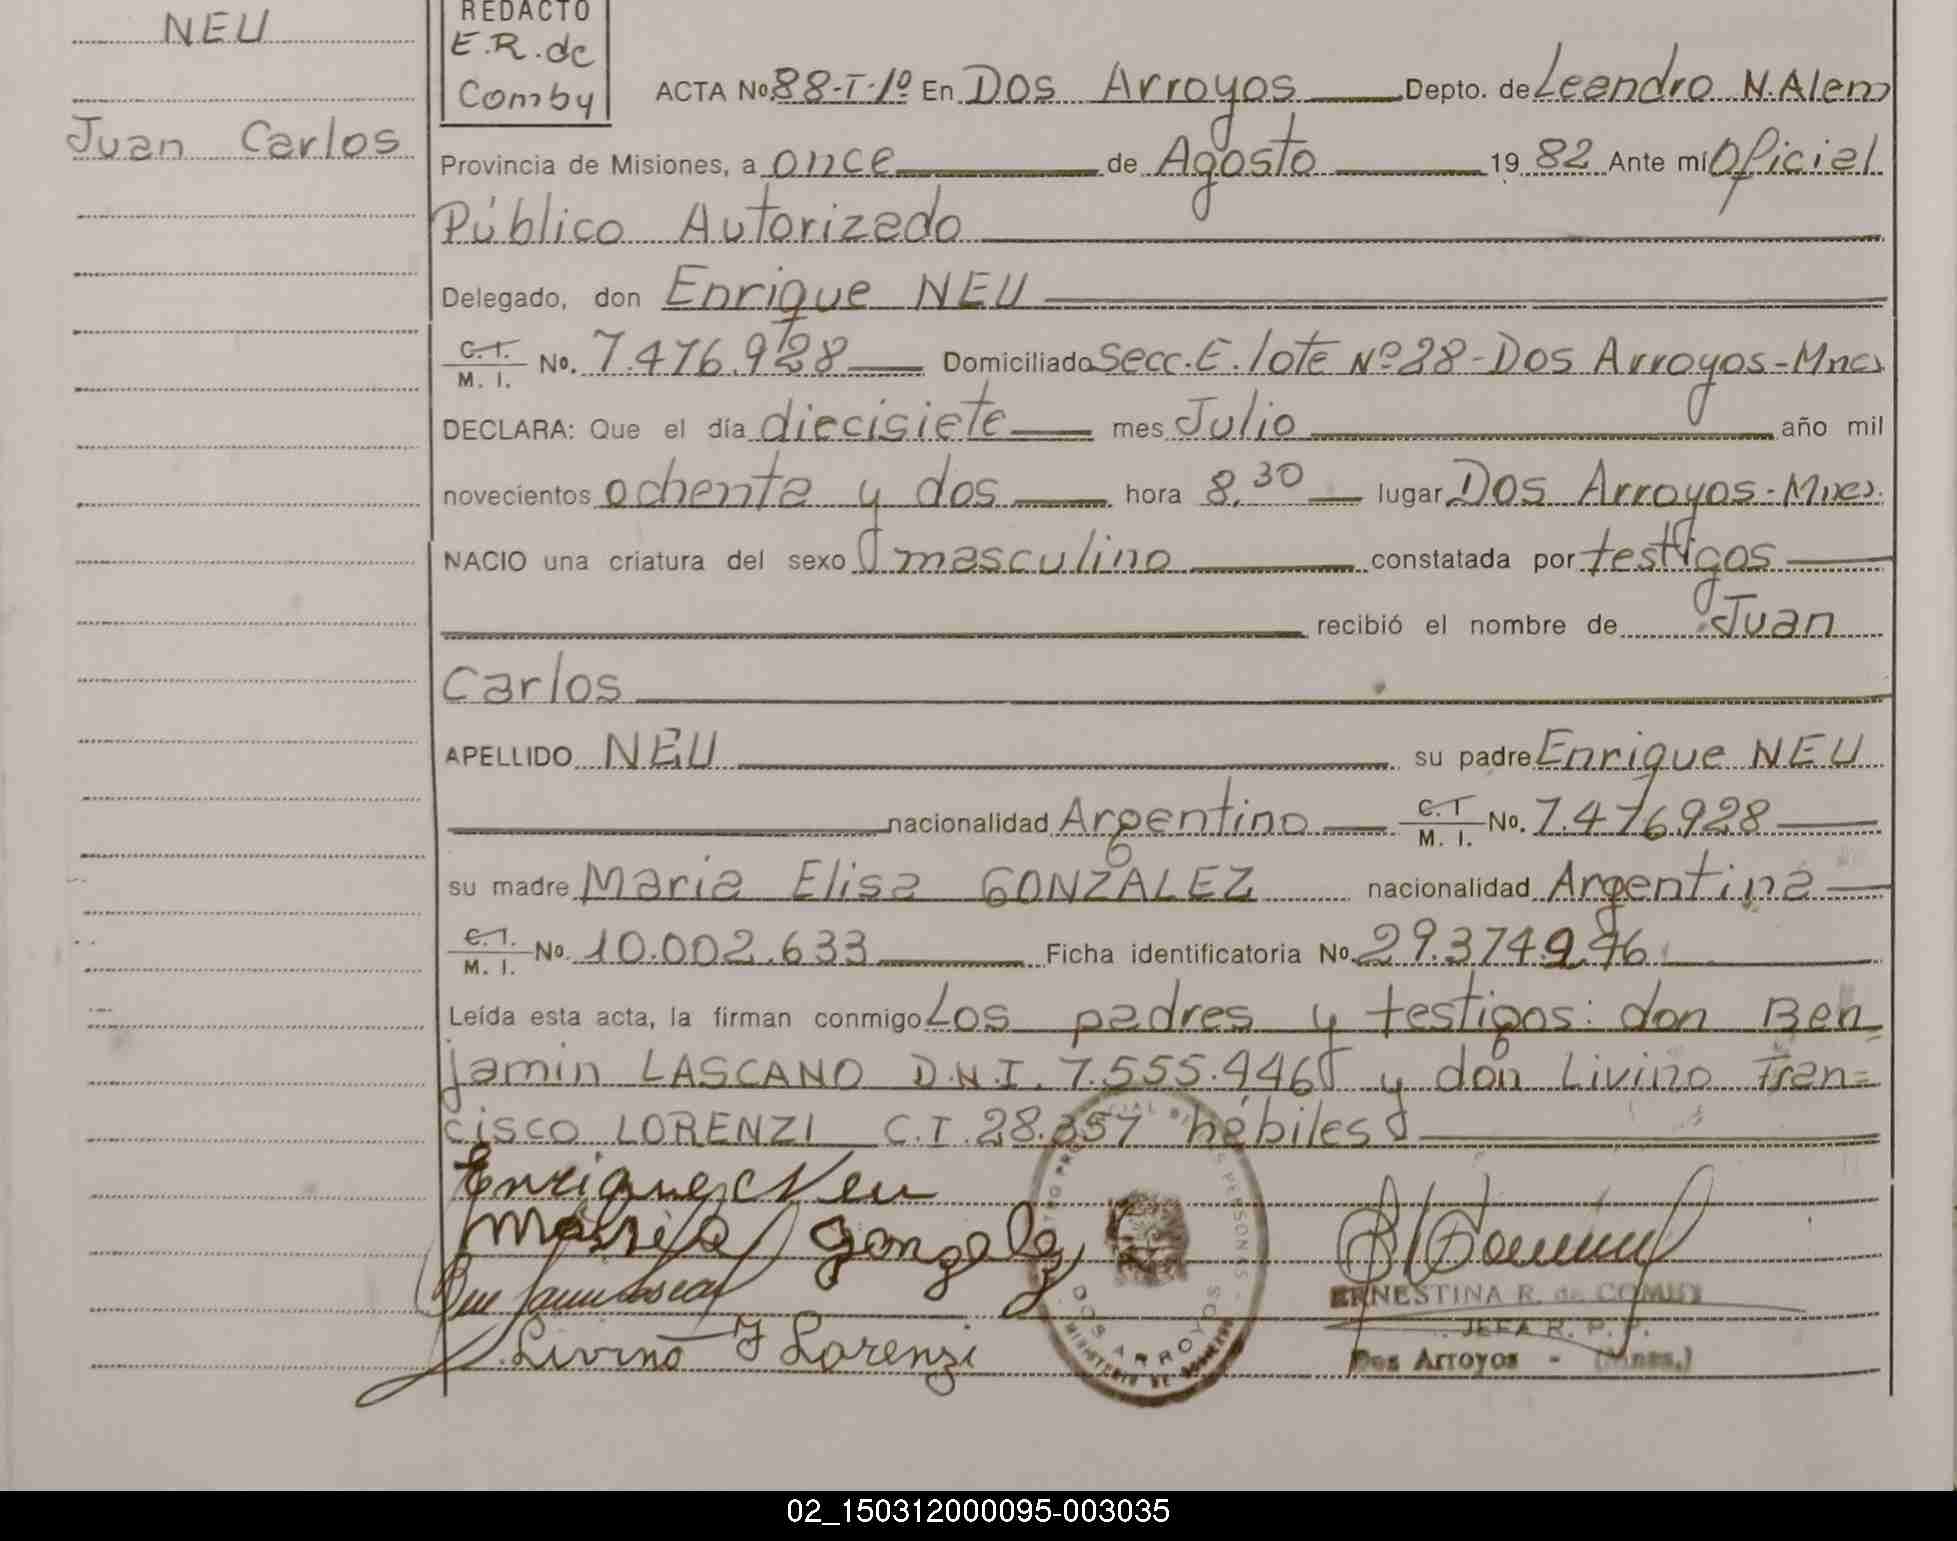 NEU
Juan Carlos
REDACTO
E.R. de
Comby
ACTA No 88-T-1º En Dos Arroyos Depto. de Leandro N. Alem
Provincia de Misiones, a once de Agosto 1982 Ante mí Oficial
Público Autorizado
Delegado, don Enrique NEU
C.I. M. I. No. 7.476.928 Domiciliado Secc. E. lote Nº 28 - Dos Arroyos - Mnes
DECLARA: Que el día diecisiete mes Julio año mil
novecientos ochenta y dos hora 8,30 lugar Dos Arroyos - Mnes.
NACIO una criatura del sexo masculino constatada por testigos
recibió el nombre de Juan
Carlos
APELLIDO NEU su padre Enrique NEU
nacionalidad Argentino C.I M. I. No. 7.476928
su madre Maria Elisa GONZALEZ nacionalidad Argentina
C.I. M. I. No. 10.002.633 Ficha identificatoria No. 29.374.946
Leída esta acta, la firman conmigo Los padres y testigos: don Ben
jamin LASCANO D.N.I. 7.555.446 y don Livino Fran=
cisco LORENZI C.I. 28.357 hábiles
Enrique Neu
Maria Gonzalez
Livino F Lorenzi
DOS ARROYOS
MINISTERIO DE GOBIERNO
ERNESTINA R. de COMBY
JEFA R. P. P.
Dos Arroyos - (Mnes.)
02_150312000095-003035